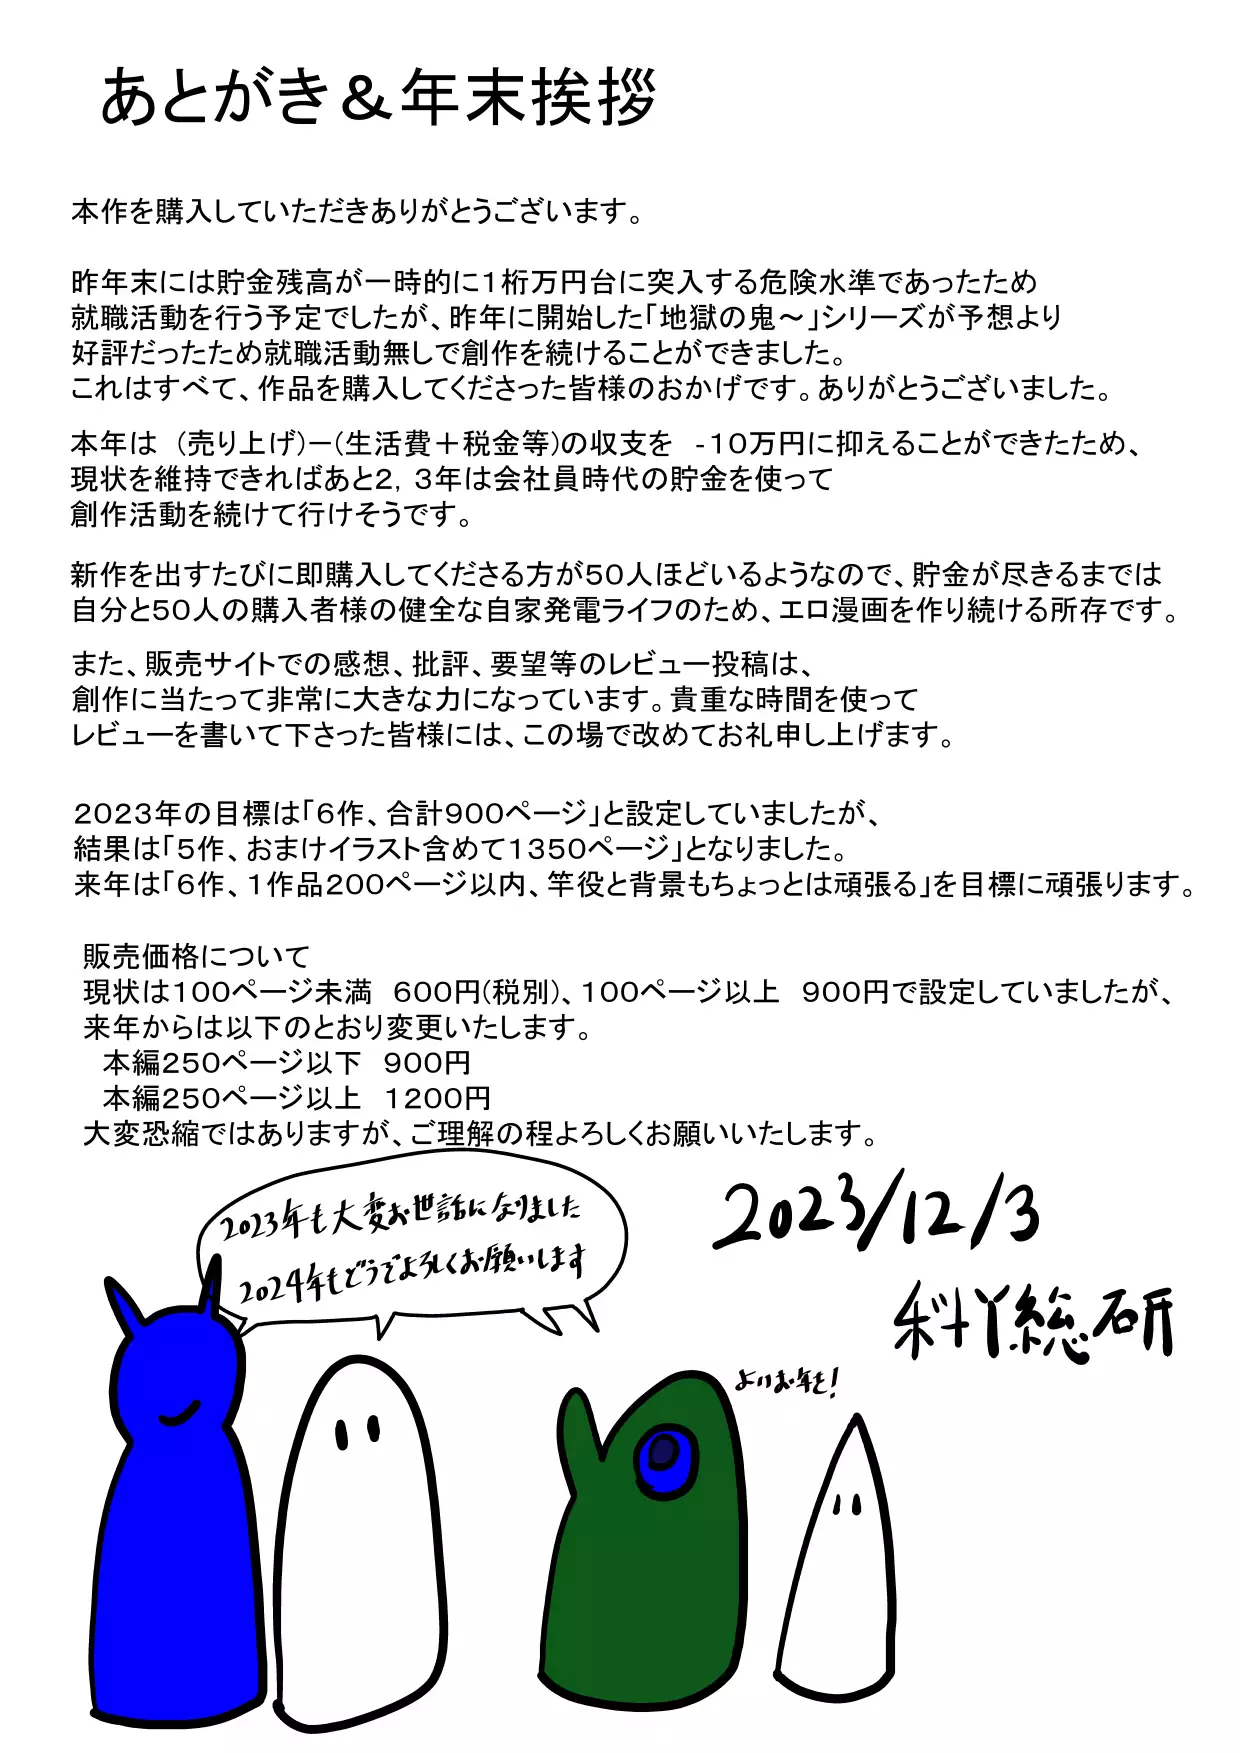 あとがき＆年末挨拶
本作を購入していただきありがとうございます。
昨年末には貯金残高が一時的に１桁万円台に突入する危険水準であったため
就職活動を行う予定でしたが、昨年に開始した「地獄の鬼～」シリーズが予想より
好評だったため就職活動無しで創作を続けることができました。
これはすべて、作品を購入してくださった皆様のおかげです。ありがとうございました。
本年は　（売り上げ）－（生活費＋税金等）の収支を　-１０万円に抑えることができたため、
現状を維持できればあと２，３年は会社員時代の貯金を使って
創作活動を続けて行けそうです。
新作を出すたびに即購入してくださる方が５０人ほどいるようなので、貯金が尽きるまでは
自分と５０人の購入者様の健全な自家発電ライフのため、エロ漫画を作り続ける所存です。
また、販売サイトでの感想、批評、要望等のレビュー投稿は、
創作に当たって非常に大きな力になっています。貴重な時間を使って
レビューを書いて下さった皆様には、この場で改めてお礼申し上げます。
２０２３年の目標は「６作、合計９００ページ」と設定していましたが、
結果は「５作、おまけイラスト含めて１３５０ページ」となりました。
来年は「６作、１作品２００ページ以内、竿役と背景もちょっとは頑張る」を目標に頑張ります。
販売価格について
現状は１００ページ未満　６００円（税別）、１００ページ以上　９００円で設定していましたが、
来年からは以下のとおり変更いたします。
本編２５０ページ以下　９００円
本編２５０ページ以上　１２００円
大変恐縮ではありますが、ご理解の程よろしくお願いいたします。
2023年も大変お世話になりました
2024年もどうぞよろしくお願いします
2023/12/3
料丫総研
よいお年を！